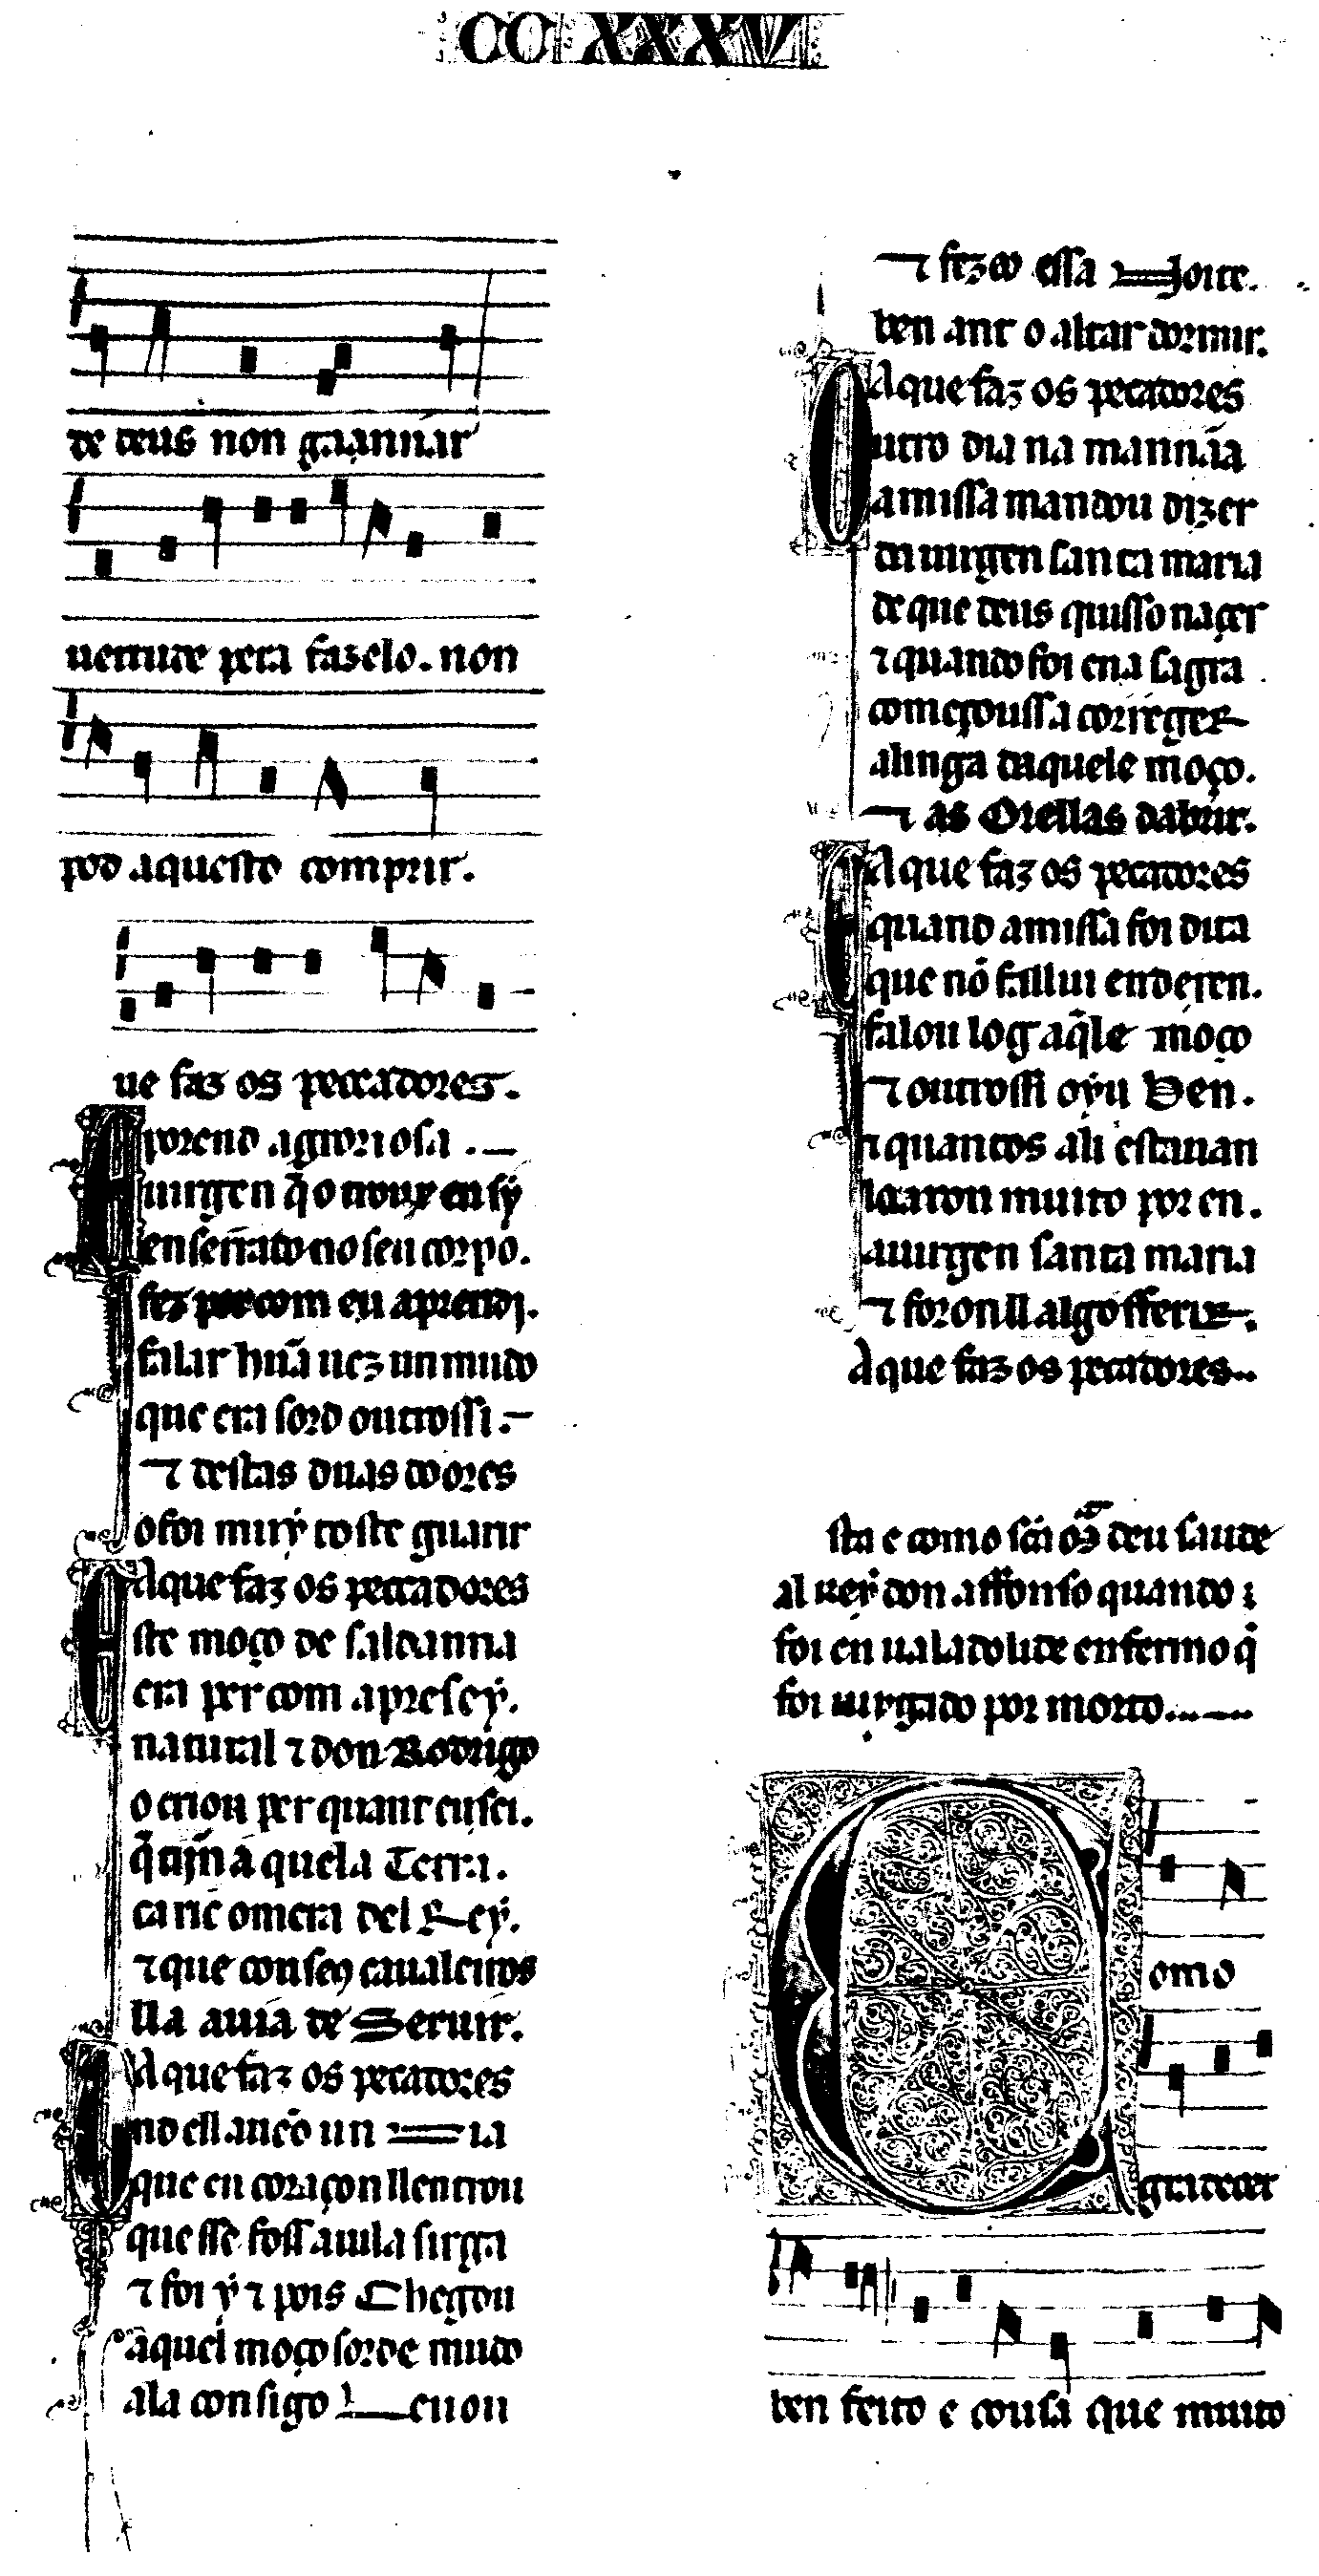 CCXXXV
de deus non gaannar
uertude pera fazelo. non
pod aquesto comprir.
ue faz os peccadores.
porend a groriosa.
uirgen q̄ o troux en sy
enserrado no seu corpo.
fez per com eu aprendi.
falar hũa uez un mudo
que era sord outrossi.
⁊ destas duas doores
o foi muy toste guarir
A que faz os peccadores
ste moço de saldanna
era per com apres ey.
natural ⁊ don Rodrigo
o criou per quant eu sei.
a quela Terra.
ca ric om era del Rey.
⁊ que consseus caualeiros
lla auia de Seruir.
A que faz os pecadores
no ell auẽo un dia
que en coraçon ll entrou
que sse foss a uila sirga
⁊ foi y ⁊ pois Chegou
aquel moço sorde mudo
ala consigo Leuou
⁊ fezeo essa Noite.
ben ant o altar dormir.
A que faz os pecadores
utro dia na mannãa
a missa mandou dizer
da uirgen santa maria
de que deus quisso naçer
⁊ quando foi ena sagra
começousse a correger
a linga daquele moço.
⁊ as Orellas dabrir.
A que faz os pecadores
quand a missa foi dita
que nõ falliu ende ren.
falou log aq̄le moço
⁊ outrossi oyu Ben.
quantos ali estauan
loaron muito poren.
a uirgen santa maria
⁊ foron ll alg offerir.
A que faz os pecadores
sta e como sc̃a mã deu saude
al Rey don affonso quando
foi en ualadolide enfermo q̄
foi iuygado por morto
omo
gradeçer
ben feito e cousa que muito